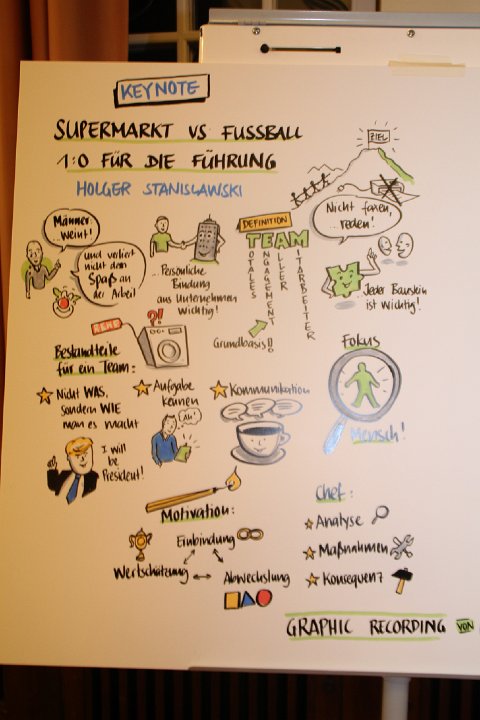 KEYNOTE
SUPERMARKT VS FUSSBALL
1:0 FÜR DIE FÜHRUNG
HOLGER STANISLAWSKI
ZIEL
Männer
weint!
und verliert
nicht den
Spaß an
der Arbeit
...Persönliche
Bindung
ans Unternehmen
wichtig!
DEFINITION
TEAM
TOTALES
ENGAGEMENT
ALLER
MITARBEITER
Grundbasis!!
Nicht faxen,
reden!
...Jeder Baustein
ist wichtig!
REWE
?!
Bestandteile
für ein Team:
Nicht WAS,
sondern WIE
man es macht
I will
be
President!
Aufgabe
kennen
Ah!
Kommunikation
Fokus
Mensch!
Motivation:
Einbindung
Wertschätzung
Abwechslung
Chef:
Analyse
Maßnahmen
Konsequenz
GRAPHIC RECORDING VON